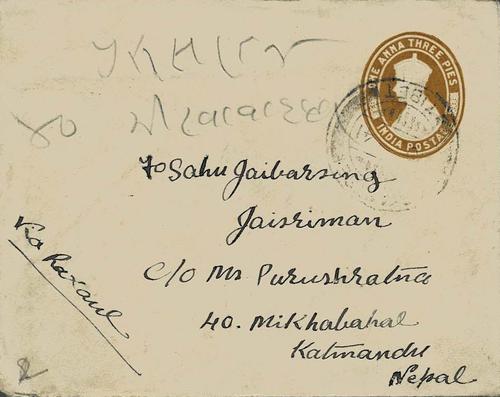 ONE ANNA THREE PIES
INDIA POSTAGE
TIBET
To Sahu Jaibarsing
Jaisriman
C/O Mr Purushratna
40. Mikhabahal
Katmandu
Nepal
Via Raxaul